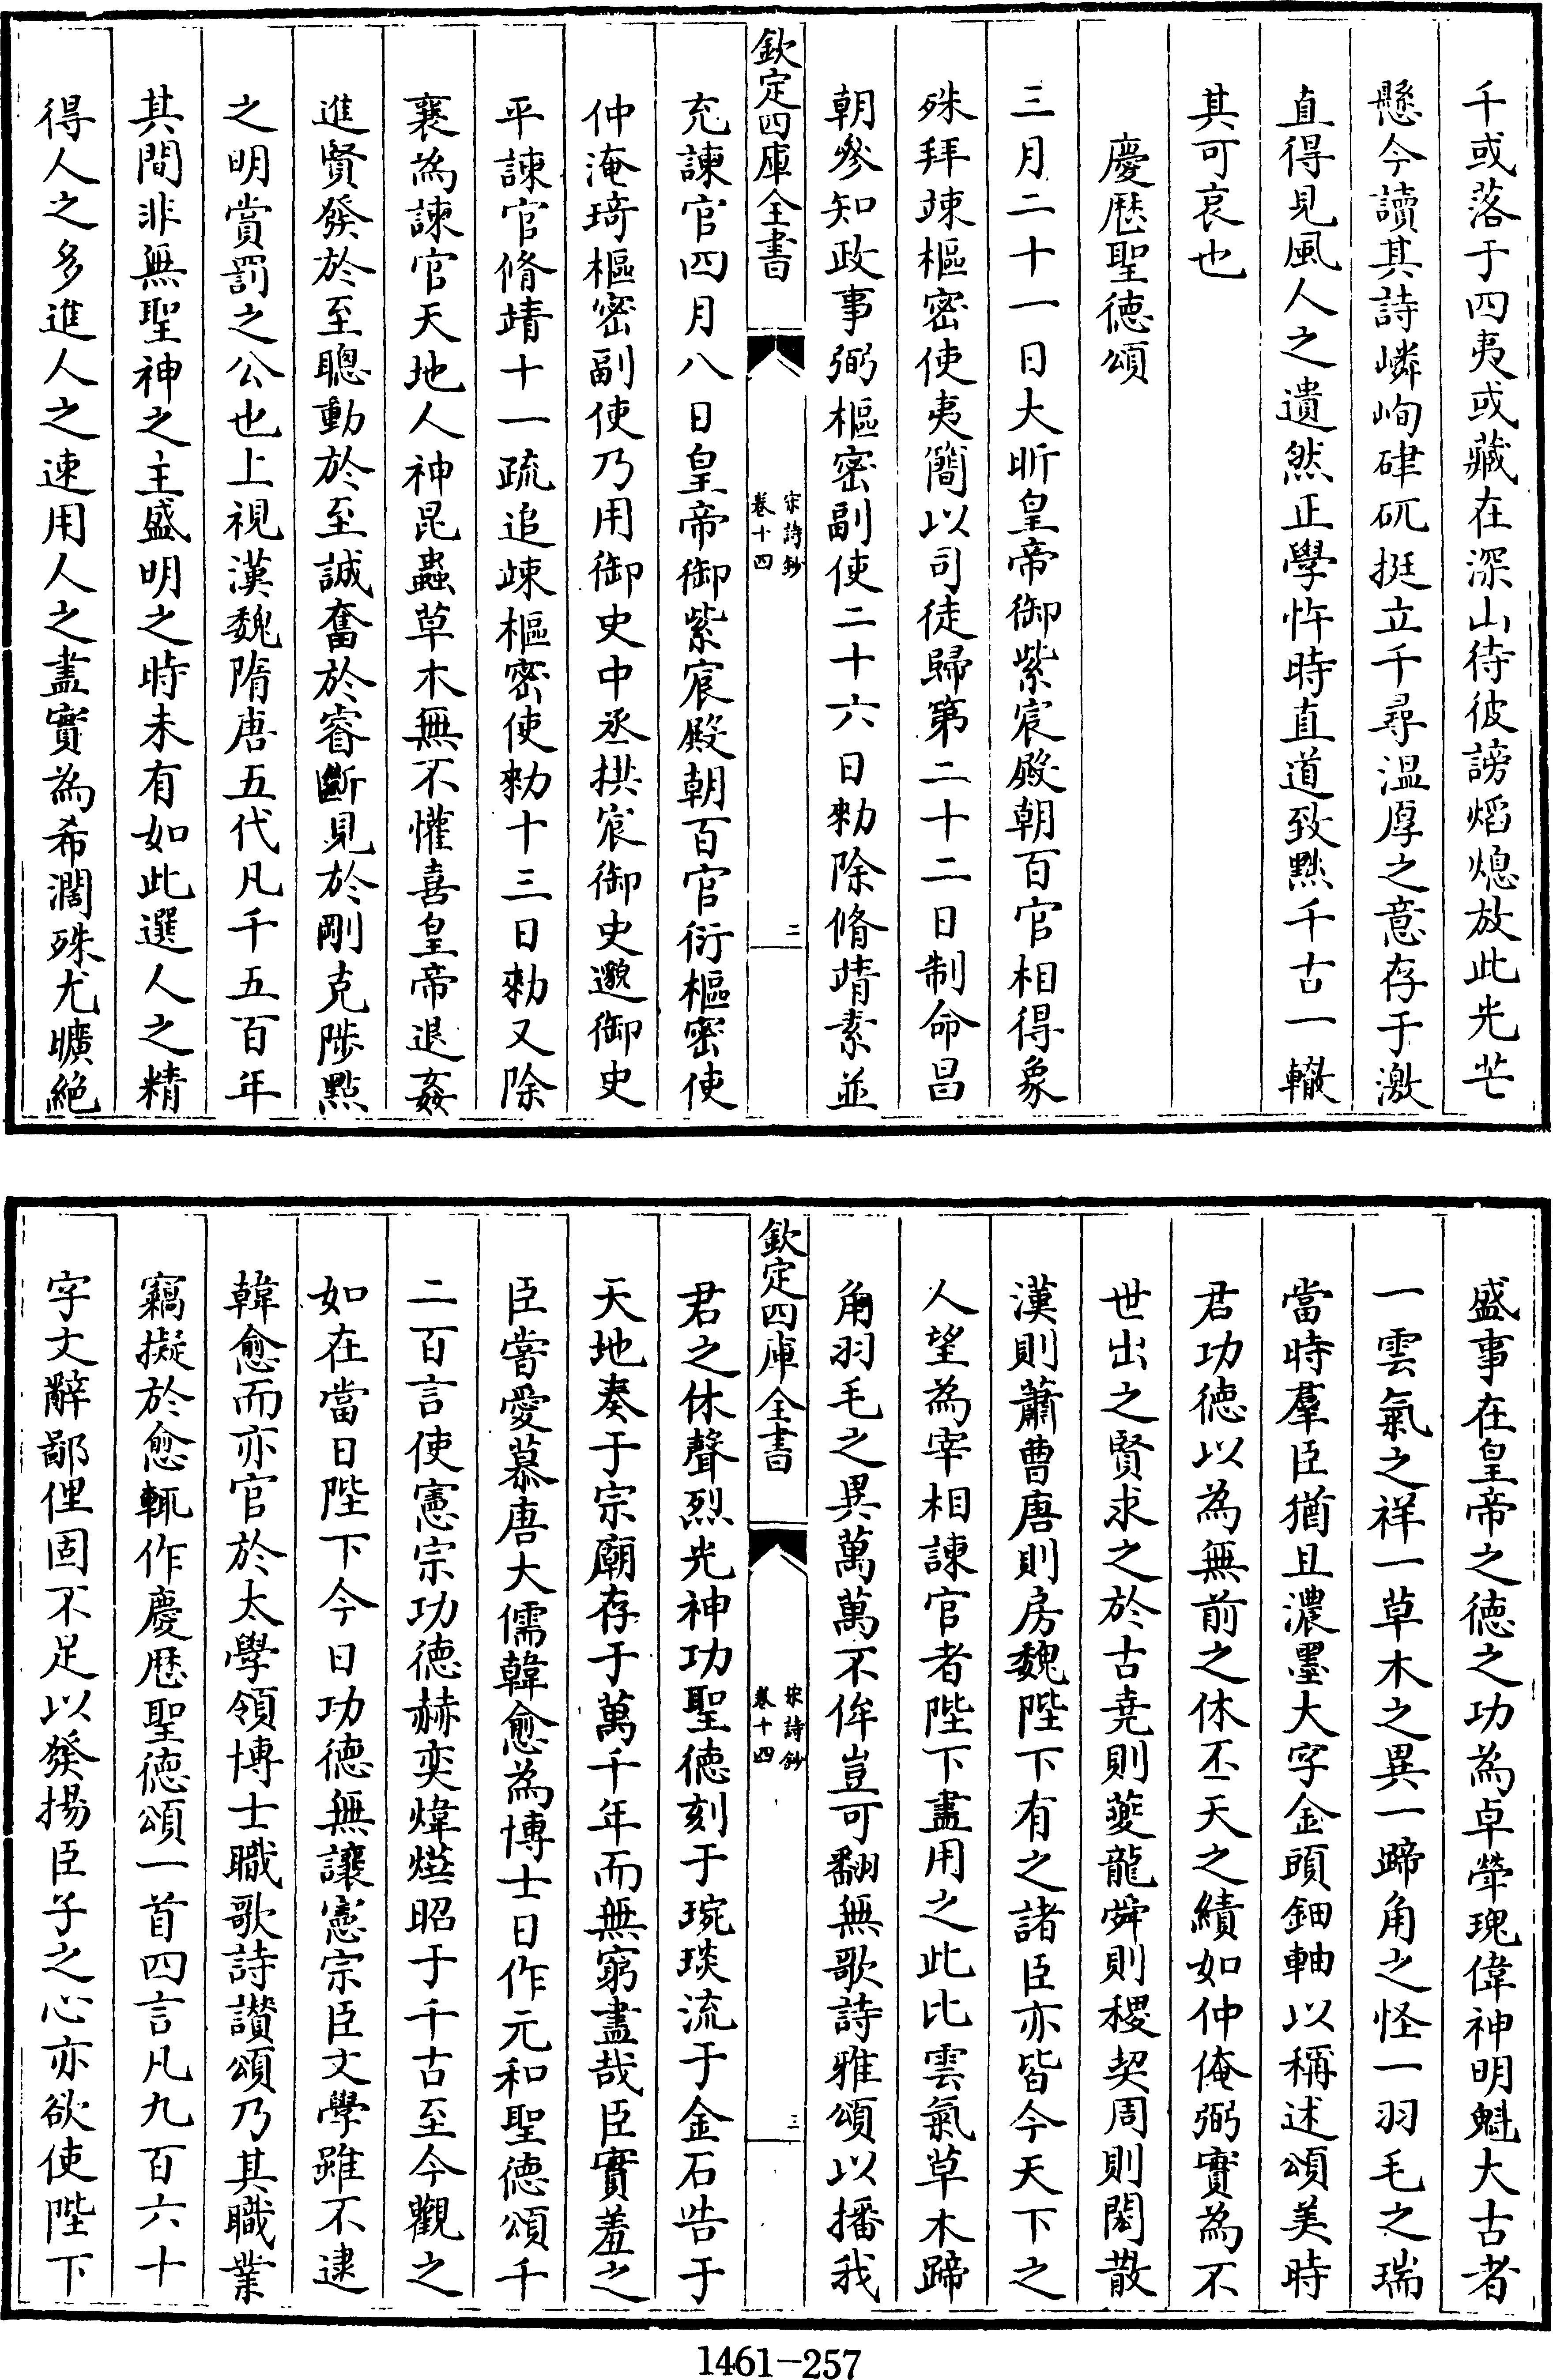 千或落于四夷或藏在深山待彼謗焰熄放此光芒
懸今讀其詩嶙峋硉矹挺立千尋溫厚之意存于激
直得見風人之遺然正學忤時直道致黜千古一轍
其可哀也
慶厯聖德頌
三月二十一日大昕皇帝御紫宸殿朝百官相得象
殊拜竦樞密使夷簡以司徒歸第二十二日制命昌
朝參知政事弼樞密副使二十六日勑除脩靖素並
欽定四庫全書
宋詩鈔
卷十四
二
充諫官四月八日皇帝御紫宸殿朝百官衍樞密使
仲淹琦樞密副使乃用御史中丞拱宸御史邈御史
平諫官脩靖十一疏追竦樞密使勑十三日勑又除
襄為諫官天地人神昆蟲草木無不懽喜皇帝退姦
進賢發於至聰動於至誠奮於睿斷見於剛克陟黜
之明賞罰之公也上視漢魏隋唐五代凡千五百年
其間非無聖神之主盛明之時未有如此選人之精
得人之多進人之速用人之盡實為希濶殊尤曠絶
盛事在皇帝之德之功為卓犖瑰偉神明魁大古者
一雲氣之祥一草木之異一蹄角之怪一羽毛之瑞
當時羣臣猶且濃墨大字金頭鈿軸以稱述頌美時
君功德以為無前之休丕天之績如仲俺弼實為不
世出之賢求之於古堯則夔龍舜則稷契周則閎散
漢則蕭曹唐則房魏陛下有之諸臣亦皆今天下之
人望為宰相諫官者陛下盡用之此比雲氣草木蹄
角羽毛之異萬萬不侔豈可翻無歌詩雅頌以播我
欽定四庫全書
宋詩鈔
卷十四
三
君之休聲烈光神功聖德刻于琬琰流于金石告于
天地奏于宗廟存于萬千年而無窮盡哉臣實羞之
臣嘗愛慕唐大儒韓愈為博士日作元和聖德頌千
二百言使憲宗功德赫奕煒燁昭于千古至今觀之
如在當日陛下今日功德無讓憲宗臣文學雖不逮
韓愈而亦官於太學領博士職歌詩讃頌乃其職業
竊擬於愈輒作慶厯聖德頌一首四言凡九百六十
字文辭鄙俚固不足以發揚臣子之心亦欲使陛下
1461-257